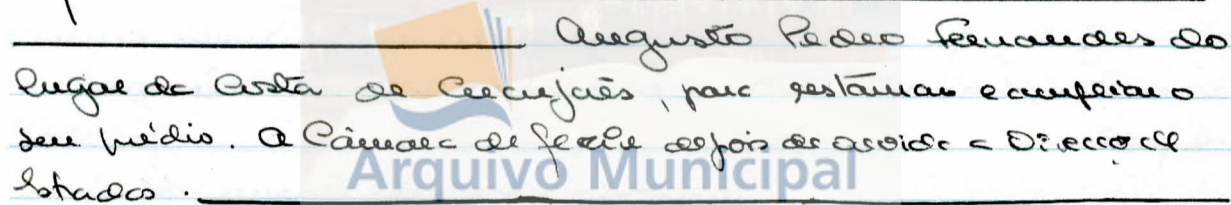 Augusto Pedro Fernandes do
lugar da Costa de Cucujães, para restaurar e ampliar o
seu prédio. A Câmara defere depois de ouvida a Direcção de
Estradas.
Arquivo Municipal